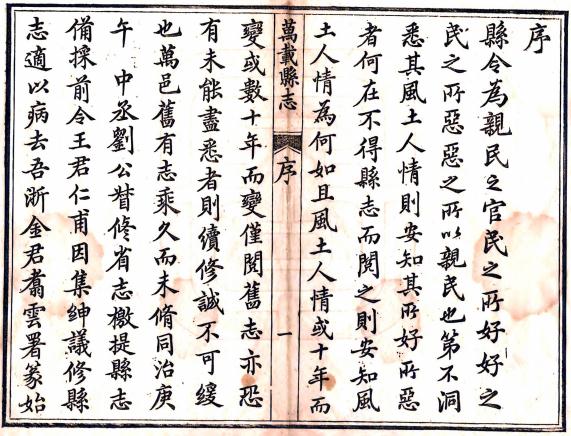 序
縣令為親民之官民之所好好之
民之所惡惡之所以親民也第不洞
悉其風土人情則安知其所好所惡
者何在不得縣志而閱之則安知風
土人情為何如且風土人情或十年而
萬載縣志
序
一
變或數十年而變僅閱舊志亦恐
有未能盡悉者則續修誠不可緩
也萬邑舊有志乘久而未脩同治庚
午 中丞劉公督修省志檄提縣志
備採前令王君仁甫因集紳議修縣
志適以病去吾浙金君翥雲署篆始